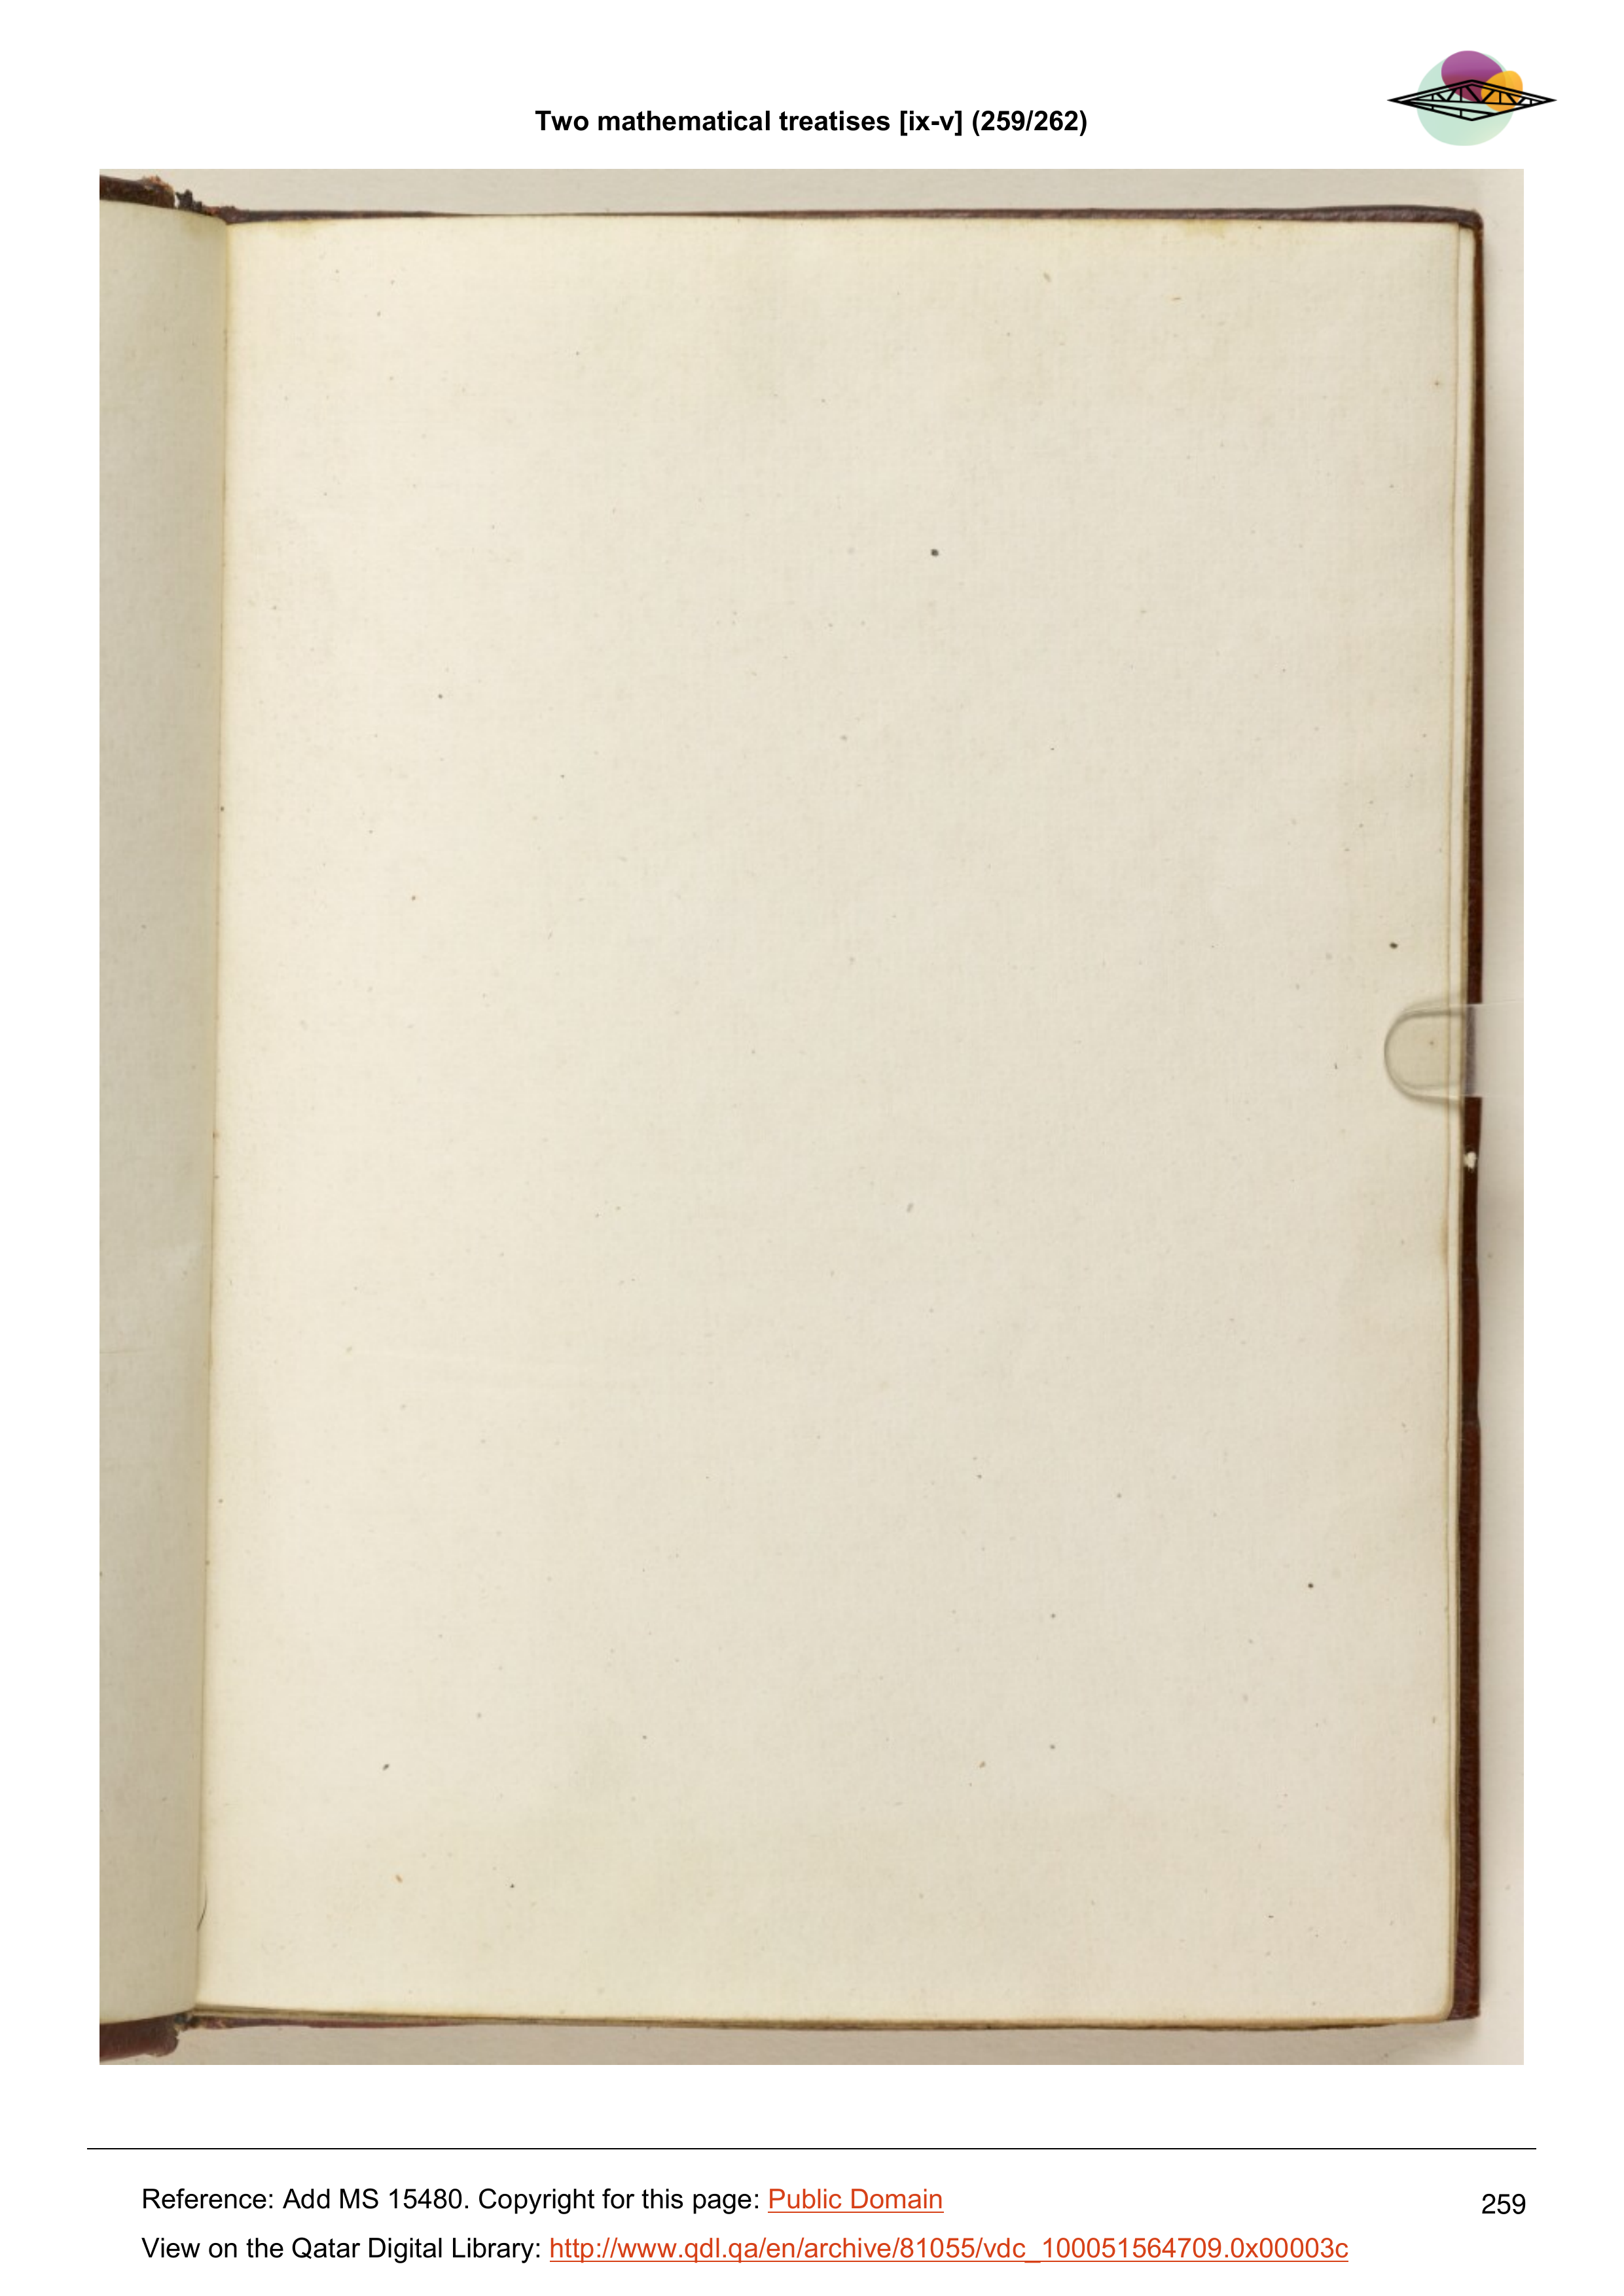 Two mathematical treatises [ix-v] (259/262)
Reference: Add MS 15480. Copyright for this page: Public Domain
259
View on the Qatar Digital Library: http://www.qdl.qa/en/archive/81055/vdc_100051564709.0x00003c